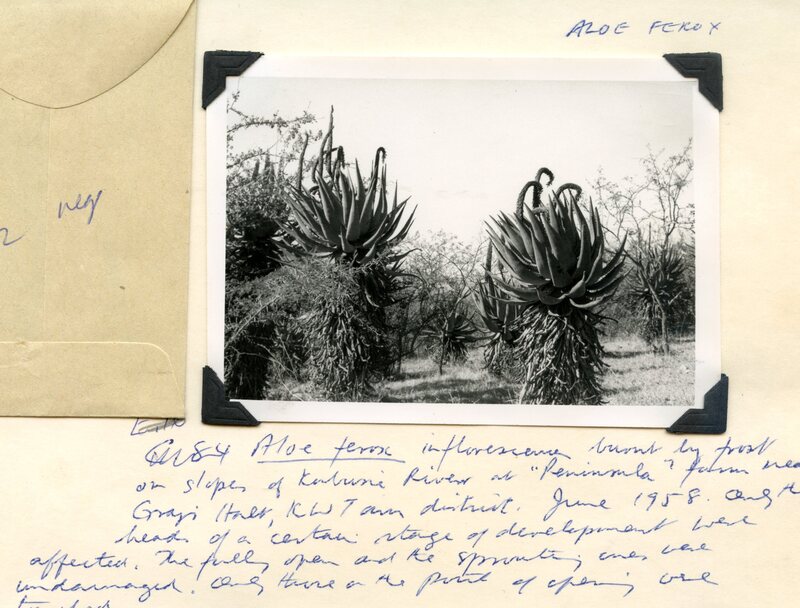 ALOE FEROX
neg
Aloe ferox inflorescence burnt by frost
on slopes of Kubusie River at "Peninsula" farm nea
Grays Halt, KWTown district. June 1958. Only th
heads of a certain stage of development were
affected. The fully open and the sprouting ones were
undamaged. Only those on the point of opening were